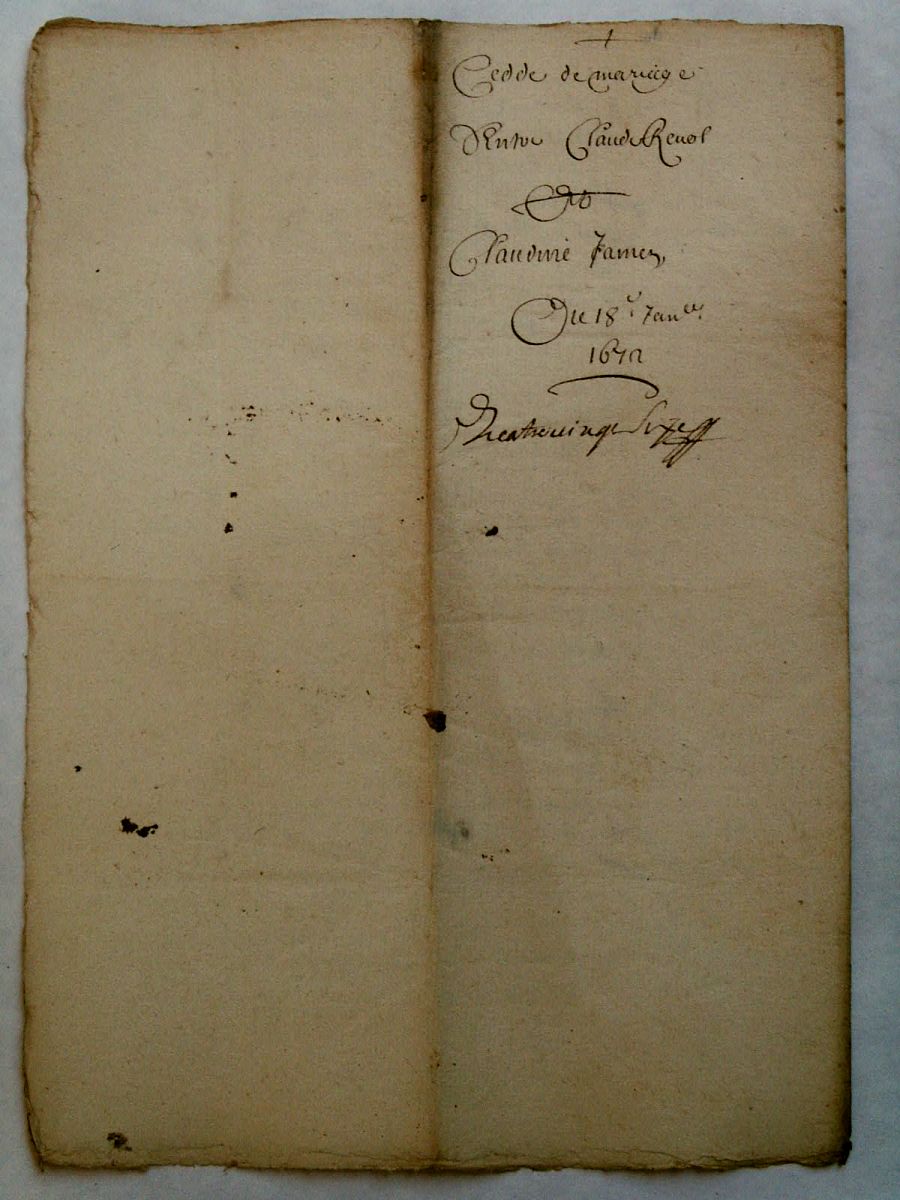 Cedde de mariage
D'Entre Claude Revol
Et
Claudine James
Du 18e Janer
1672
Quatrevingt Sixe